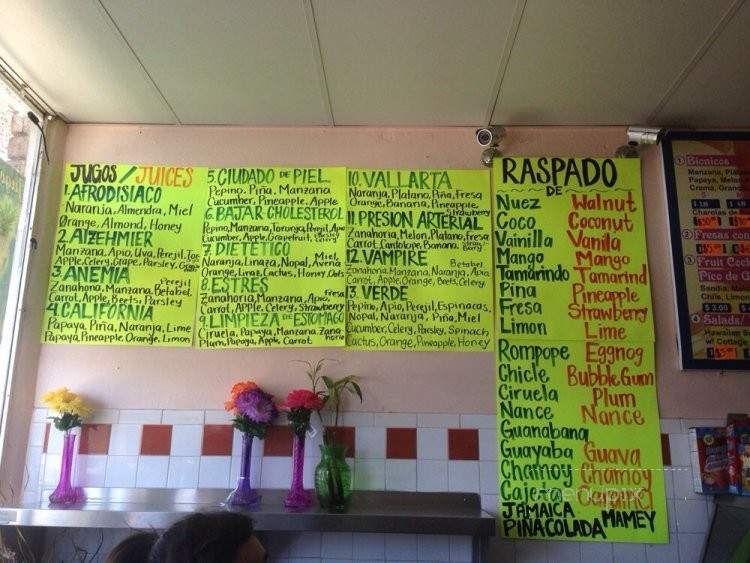 JUGOS / JUICES
1. AFRODISIACO
Naranja, Almendra, Miel
Orange, Almond, Honey
2. ALZEHMIER
Manzana, Apio, Uva, Perejil,
Apple, Celery, Grape, Parsley,
3. ANEMIA
Perejil
Zanahoria, Manzana, Betabel
Carrot, Apple, Beets, Parsley
4. CALIFORNIA
Papaya, Piña, Naranja, Lime
Papaya, Pineapple, Orange, Lime
5. CIUDADO DE PIEL
Pepino, Piña, Manzana
Cucumber, Pineapple, Apple
6. BAJAR CHOLESTEROL
Pepino, Manzana, Toronja, Perejil, Apio
Cucumber, Apple, Grapefruit,
7. DIETETIGO
Naranja, Linaza, Nopal, Miel
Orange, Linaz, Cactus, Honey,
8. ESTRES
Fresa
Zanahoria, Manzana, Apio,
Carrot, Apple, Celery, Strawberry
9. LIMPIEZA DE ESTOMAGO
Ciruela, Papaya, Manzana, Zana
Plum, Papaya, Apple, Carrot
10. VALLARTA
Naranja, Platano, Piña, Fresa
Orange, Banana, Pineapple,
Strawberry
11. PRESION ARTERIAL
Zanahoria, Melon, Platano, Fresa
Carrot, Cantolope, Banana,
12. VAMPIRE
Betabel
Zanahoria, Manzana, Naranja, Apio
Carrot, Apple, Orange, Beets, Celery
13. VERDE
Pepino, Apio, Perejil, Espinacas,
Nopal, Naranja, Piña, Miel
Cucumber, Celery, Parsley, Spinach
Cactus, Orange, Pineapple, Honey
RASPADO
DE
Nuez Walnut
Coco Coconut
Vainilla Vanilla
Mango Mango
Tamarindo Tamarind
Piña Pineapple
Fresa Strawberry
Limon Lime
Rompope Eggnog
Chicle Bubble Gum
Ciruela Plum
Nance Nance
Guanabana
Guayaba Guava
Chamoy Chamoy
Cajeta
JAMAICA MAMEY
PIÑA COLADA
1 Bionicos
Manzana,
Papaya, Melon
Crema,
2 Fresas con
3 Fruit
Pico de
4 Salads/
Hawaiian